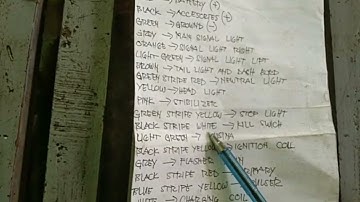 BATTERY (+)
BLACK → ACCESORIES (+)
GREEN → GROUND (-)
GREY → MAIN SIGNAL LIGHT
ORANGE → SIGNAL LIGHT RIGHT
LIGHT GREEN → SIGNAL LIGHT LIFT
BROWN → TAIL LIGHT AND DASH BORD
GREEN STRIPE RED → NEUTRAL LIGHT
YELLOW → HEAD LIGHT
PINK →
GREEN STRIPE YELLOW → STOP LIGHT
BLACK STRIPE WHITE → KILL SWICH
LIGHT GREEN →
BLACK STRIPE YELLOW → IGNITION COIL
GREY → FLASHER
BLACK STRIPE RED → PRIMARY
BLUE STRIPE YELLOW → PULSER
WHITE → CHARGING COIL